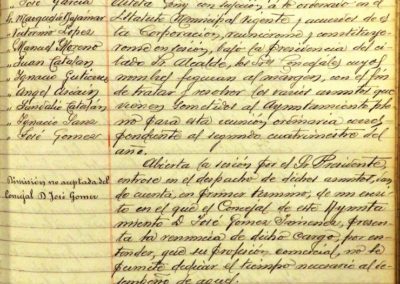 " José García
" Marquedia Bajamar
" Antonio Lopez
" Manuel Moreno
" Juan Catalán
" Ignacio Gutierrez
" Angel Asiain
" Sandalio Catalán
" Ignacio Sanz
" José Gomez
Dimisión no aceptada del
Concejal D. José Gomez
y con sujeción a lo ordenado en el
Estatuto Municipal vigente y acuerdos de es
ta Corporación, reuniéronse y constituye-
ronse en sesión, bajo la Presidencia del ci-
tado Sr. Alcalde, los Sres. Concejales cuyos
nombres figuran al margen, con el fin
de tratar y resolver los varios asuntos que
vienen sometidos al Ayuntamiento ple-
no para esta reunión ordinaria corres-
pondiente al segundo cuatrimestre del
año.
Abierta la sesión por el Sr. Presidente,
entrose en el despacho de dichos asuntos, dan-
do cuenta, en primer término, de un escri-
to en el que el Concejal de este Ayunta-
miento D. José Gomez Jimenez, presen-
ta la renuncia de dicho cargo, por en-
tender, que su profesión comercial, no le
permite dedicar el tiempo necesario al de-
sempeño de aquel.